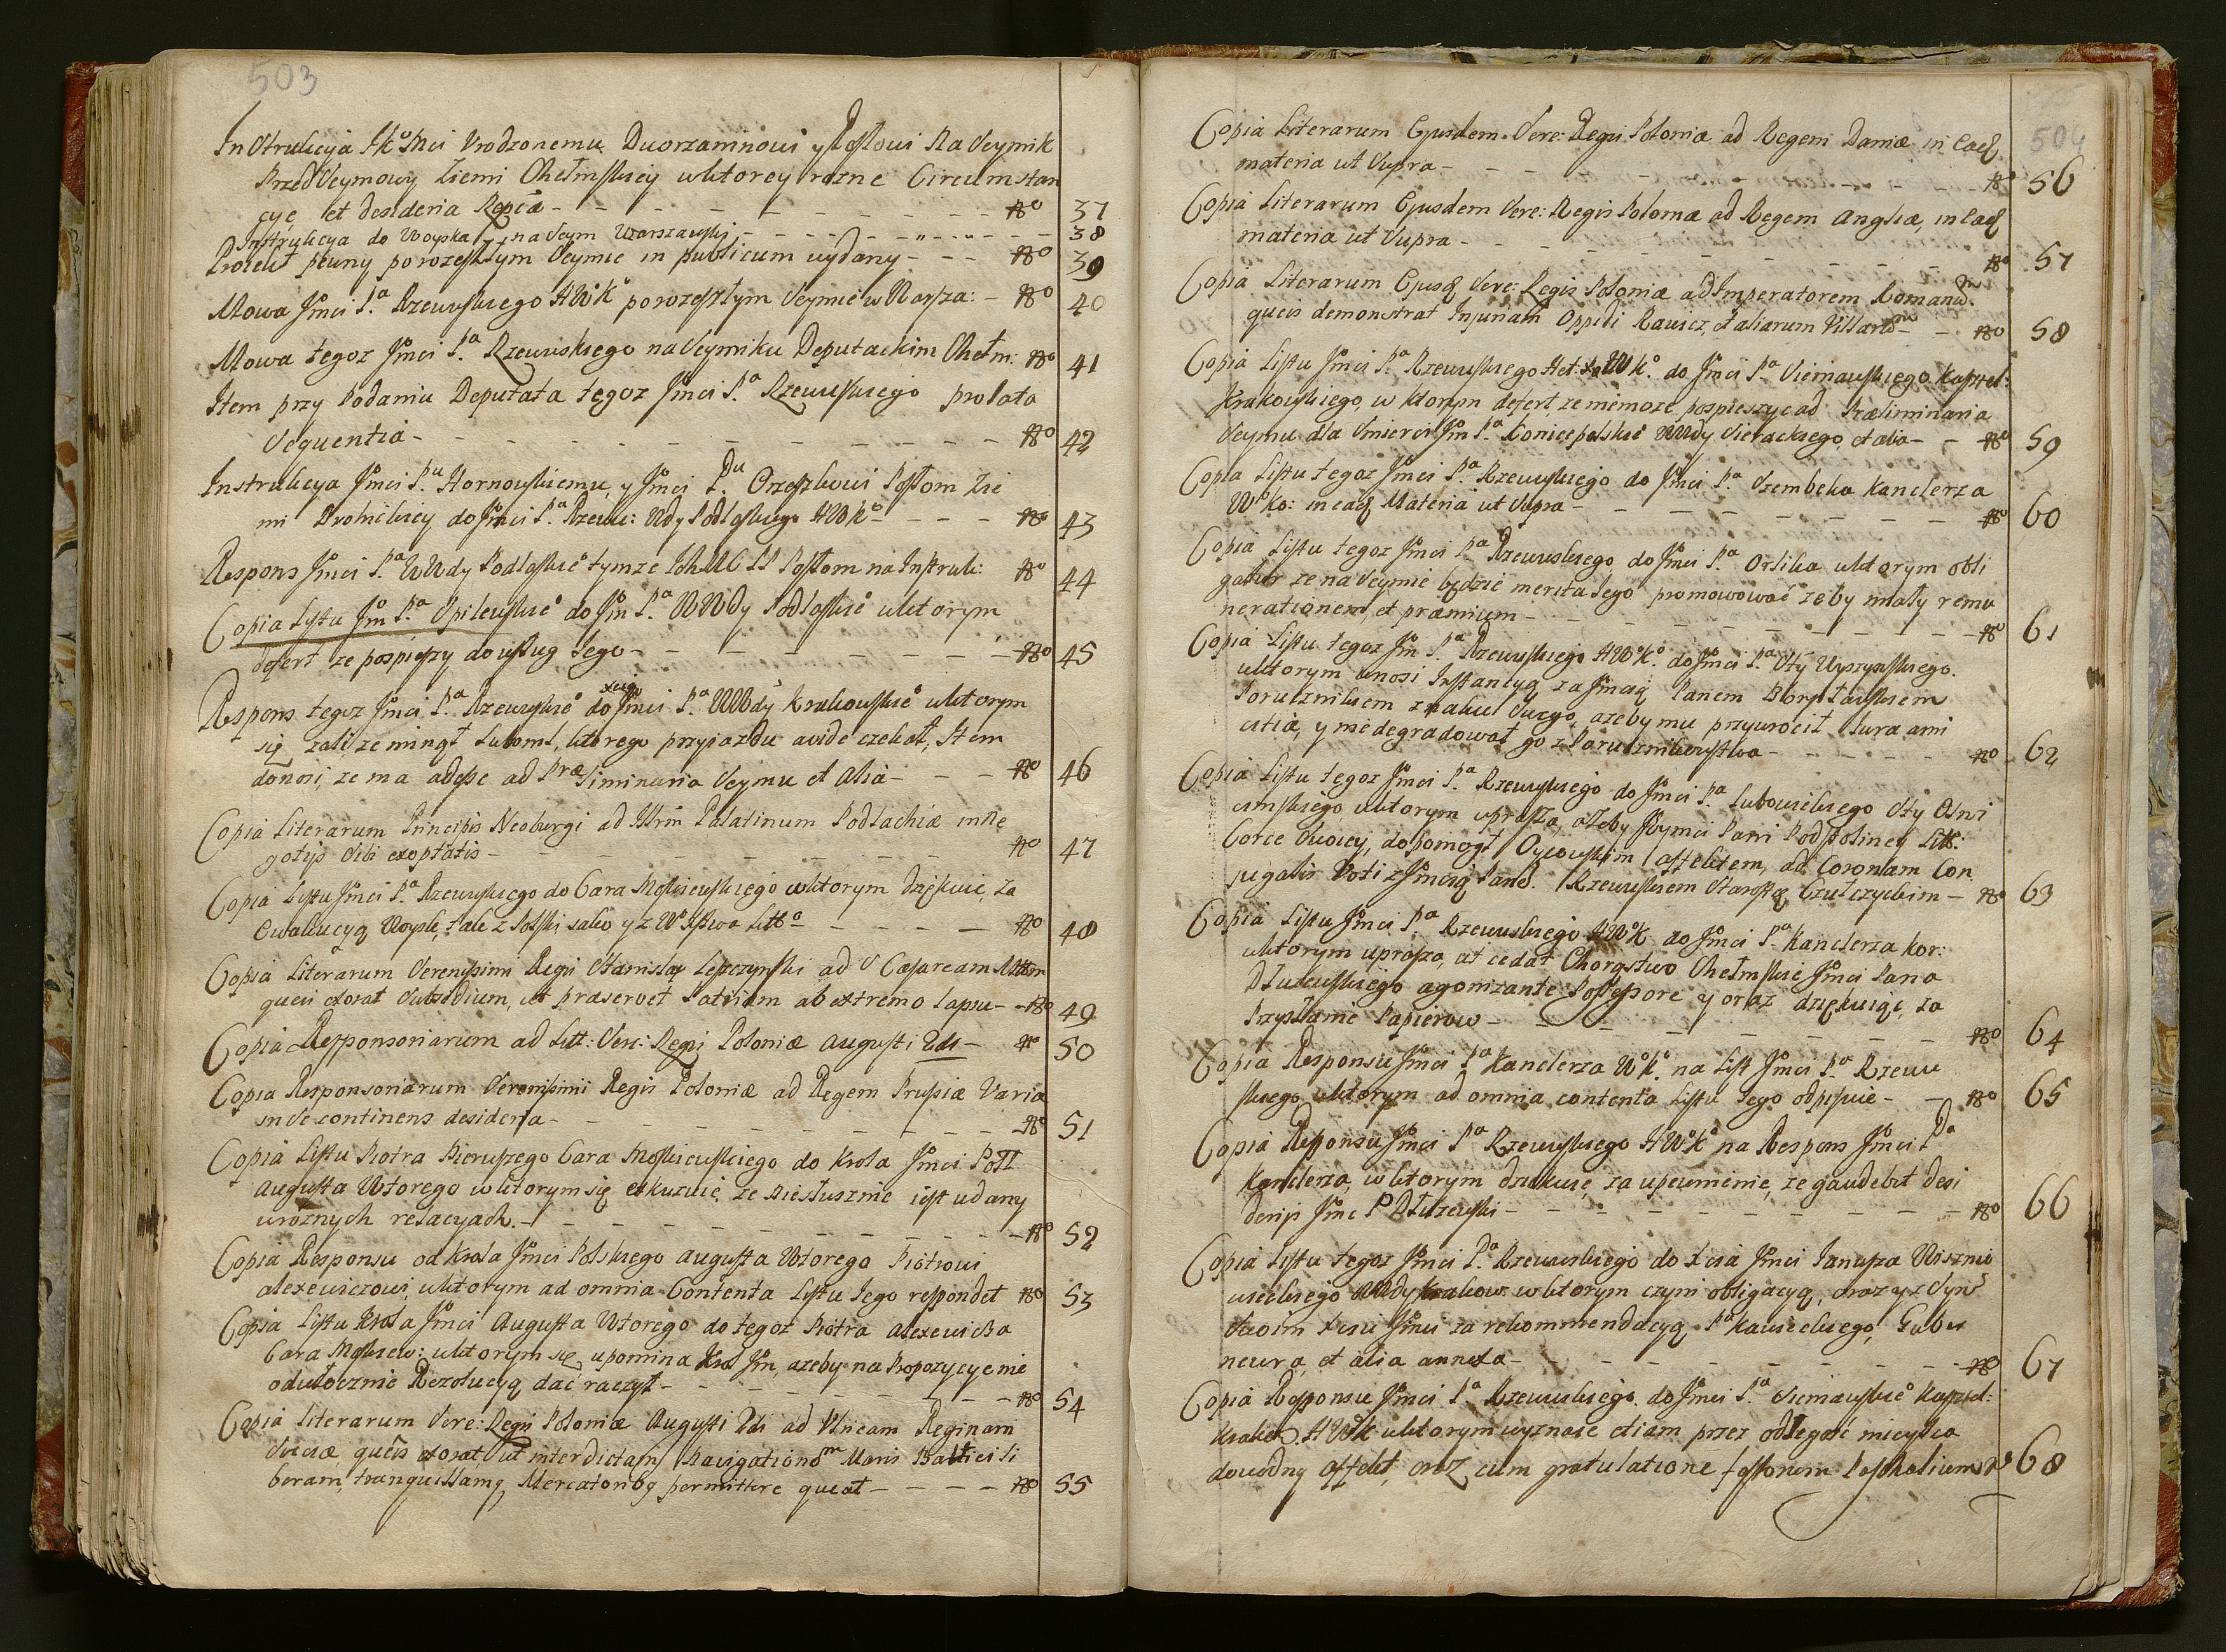 503
Instrukcyja JKo Mci Urodzonemu Dworzaninowi y Posłowi Na Seymik
Przed Seymowy Ziemi Chełmskiey wktorey rozne Circumstan
cyę et desideria Regia - - - No 37
Instrukcya do Woyska na Seym Warszawski - - - 38
Proiekt pewny porozeszłym Seymie in publicum wydany - - - No 39
Mowa Jmci Pa Rzewuskiego HWKo porozeszłym Seymie w Warsza: - No 40
Mowa tegoz Jmci Pa Rzewuskiego na Seymiku Deputackim Chełm: No 41
Item przy Podaniu Deputata tegoz Jmci Pa Rzewuskiego prolata
Sequentia - - - No 42
Instrukcya Jmci Pu Hornowskiemu, y Jmci Pu Orzeszkowi Posłom Zie
mi Drohickiey do Jmci Pa Rzewu: Wdy Podlaskiego HWKo - - - No 43
Respons Jmci Pa WWdy Podlaskio tymze IchMC PP Posłom na Instruk: No 44
Copia Listu Jm Pa Spilewskio do Jm Pa WWdy Podlaskio wktorym
defert ze pospieszy do usług Jego - - - No 45
Respons tegoz Jmci Pa Rzewuskio do xcia Jmci Pa WWdy Krakowskio wktorym
się zali ze minął Luboml, ktorego przyiazdu avide czekał, Item
donosi, ze ma adesse ad Præliminaria Seymu et Alia - - - No 46
Copia Literarum Principis Neoburgi ad Illrm Palatinum Podlachiæ in Ne
gotijs Sibi exoptatis - - - No 47
Copia Listu Jmci Pa Rzewuskiego do Cara Moskiewskiego wktorym Dziękuie, Za
Ewakucyą Woysk, tak z Polski iako y z Wo Xstwa Litto - - - No 48
Copia Literarum Serenissimi Regis Stanislai Leszczynski ad S Cæsaream Mttem
queis exorat Subsidium, ut præservet Patriam ab extremo lapsu - - No 49
Copia Responsoriarum ad Litt: Sere: Regis Poloniæ Augusti 2di - No 50
Copia Responsoriarum Serenissimi Regis Poloniæ ad Regem Prussiæ Varia
in se continens desideria - - - No 51
Copia Listu Piotra Pierwszego Cara Moskiewskiego do Krola Jmci Poll
Augusta Wtorego wktorym się exkuzuie, ze niesłusznie iest udany
wroznych relacyach. - - - No 52
Copia Responsu od Krola Jmci Polskiego Augusta Wtorego Piotrowi
Alexiewiczowi, wktorym ad omnia Contenta Listu Jego respondet No 53
Copia Listu Krola Jmci Augusta Wtorego do tegoz Piotra Alexiewicza
Cara Moskiew: wktorym się upomina Krol Jm, azeby na Propozycye nie
odwłocznie Rezolucyą dać raczył - - - No 54
Copia Literarum Sere: Regis Poloniæ Augusti 2di ad Reginam
Sueciæ, queis exorat ut interdictam Navigationem Maris Baltici li
beram, tranquillamq Mercatoribq permittere queat - - - No 55
504
Copia Literarum Ejusdem Sere: Regis Poloniæ ad Regem Daniæ in Eaq
materia ut Supra - - - No 56
Copia Literarum Ejusdem Sere: Regis Poloniæ ad Regem Angliæ, in Eaq
materia ut Supra - - - No 57
Copia Literarum Ejusq Sere: Regis Poloniæ ad Imperatorem Romanum
queis demonstrat Injuriam Oppidi Rawicz, et aliarum Villarum - - No 58
Copia Listu Jmci Pa Rzewuskiego Het WKo do Jmci Pa Sieniawskiego Kasztel:
Krakowskiego, w ktorym defert, ze niemoze pospieszyc ad Præliminaria
Seymu dla Smierci Jm Pa Koniecpolskio WWdy Sieradzkiego, et alia - - No 59
Copia Listu tegoz Jmci Pa Rzewuskiego do Jmci Pa Szembeka Kanclerza
Wo Ko: in eaq Materia ut Supra - - - No 60
Copia Listu tegoz Jmci Pa Rzewuskiego do Jmci Pa Orlika wktorym obli
gatur ze na Seymie będzie merita Jego promowować zeby miały remu
nerationem, et præmium - - - No 61
Copia Listu tegoz Jm Pa Rzewuskiego HWKo do Jmci Pa Sty Wyszynskiego.
wktorym wnosi Instancyą za Jmcią Panem
Porucznikiem znaku Swego, azeby mu przywrocił Jura ami
citiæ, y nie degradował go z Porucznikowstwa - - - No 62
Copia Listu tegoz Jmci Pa Rzewuskiego do Jmci Pa Lubowieckiego Sty Oswi
cimskiego wktorym uprasza, azeby Jeymci Pani Podstoliney Litt:
Corce Swoiey, dopomogł Oycowskim affektem, ad Coronam Con
jugalis Voti z Jmcią Panem Rzewuskiem Starostą Czulczyckim - No 63
Copia Listu Jmci Pa Rzewuskiego HWoK do Jmci Pa Kanclerza Kor:
wktorym uprasza, ut cedat Chorąstwo Chełmskie Jmci Pana
Dłuzewskiego agonizante Possessore y oraz dziękuiąc, za
Przysłanie Papierow - - - No 64
Copia Responsu Jmci Pa Kanclerza WoKo na List Jmci Pa Rzewu
skiego wktorym ad omnia contenta Listu Jego odpisuie - - No 65
Copia Responsu Jmci Pa Rzewuskiego HWoKo na Respons Jmci Pa
Kanclerza, wktorym dziekuie, za upewnienie, ze gaudebit desi
derijs Jmc P Dłuzewski - - - No 66
Copia Listu tegoz Jmci Pa Rzewuskiego do Xcia Jmci Janusza Wisznio
wieckiego WWdy Krakow wktorym czyni obligacyą, oraz y z Synem
Swoim Xciu Jmci za rekommendacyą Pa Gubu
neura, et alia annexa - - - No 67
Copia Responsu Jmci Pa Rzewuskiego do Jmci Pa Sieniawskio Kasztel:
Krakow HWK wktorym wyznaie etiam przez odległość mieysca
dowodny affekt, oraz cum gratulatione festorum Paschalium No 68